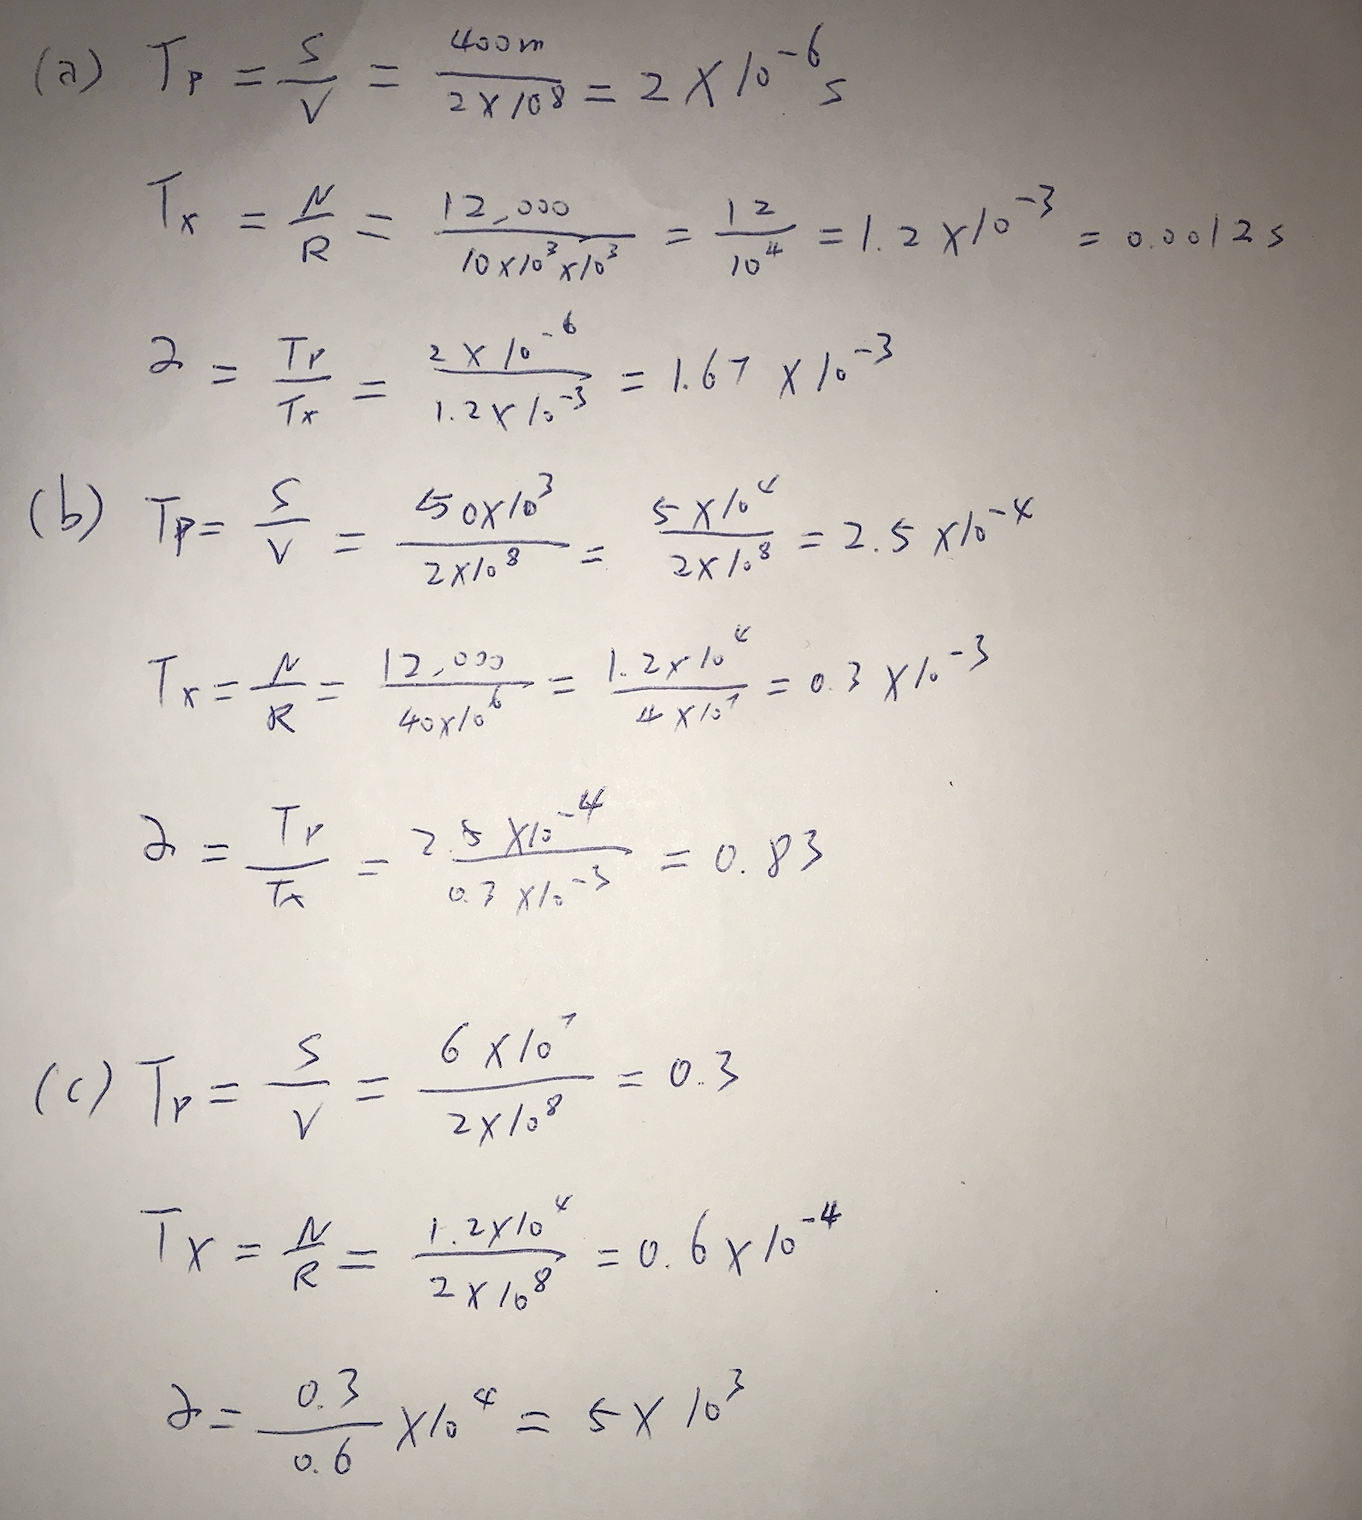 (a) Tp = S/V = 400m/2×10⁸ = 2×10⁻⁶ s
Tx = N/R = 12,000/10×10³×10³ = 12/10⁴ = 1.2×10⁻³ = 0.0012s
a = Tp/Tx = 2×10⁻⁶/1.2×10⁻³ = 1.67×10⁻³
(b) Tp = S/V = 50×10³/2×10⁸ = 5×10⁴/2×10⁸ = 2.5×10⁻⁴
Tx = N/R = 12,000/40×10⁶ = 1.2×10⁴/4×10⁷ = 0.3×10⁻³
a = Tp/Tx = 2.5×10⁻⁴/0.3×10⁻³ = 0.83
(c) Tp = S/V = 6×10⁷/2×10⁸ = 0.3
Tx = N/R = 1.2×10⁴/2×10⁸ = 0.6×10⁻⁴
a = 0.3/0.6 ×10⁴ = 5×10³